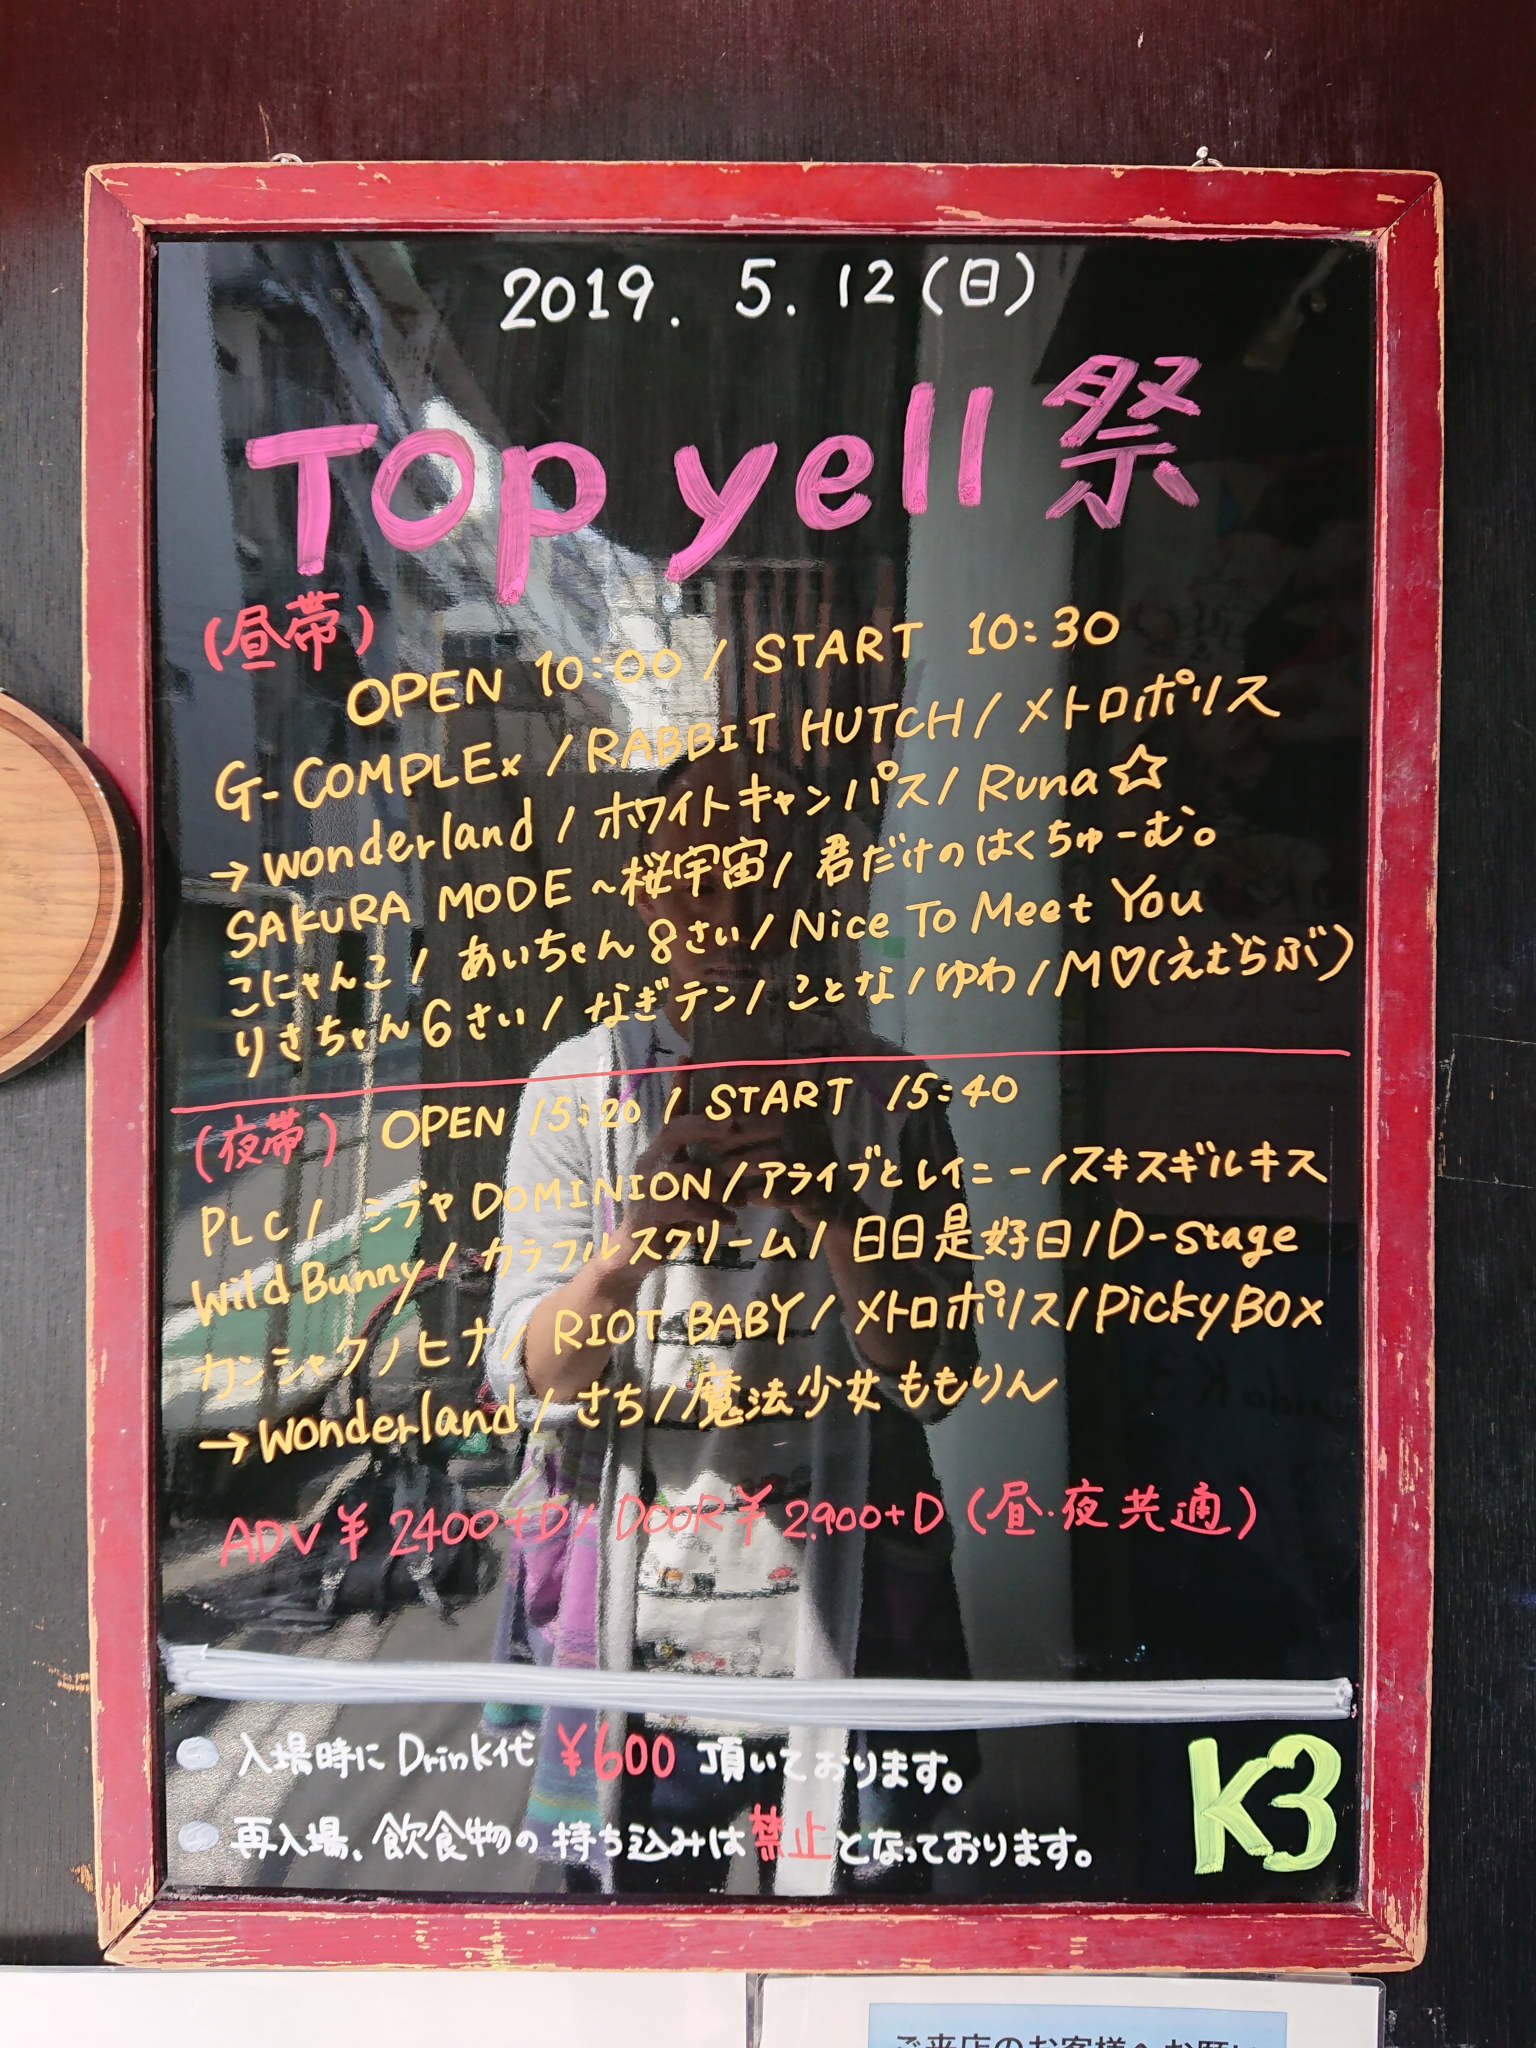 2019. 5. 12(日)
Top yell 祭
(昼帯)
OPEN 10:00 / START 10:30
G-COMPLEx / RABBIT HUTCH / メトロポリス
→wonderland / ホワイトキャンパス / Runa☆
SAKURA MODE ~桜宇宙 / 君だけのはくちゅーむ。
こにゃんこ / あいちゃん8さい / Nice To Meet You
りさちゃん6さい / なぎテン / ことな / ゆわ / M♡(えむらぶ)
(夜帯) OPEN 15:20 / START 15:40
PLC / シブヤDOMINION / アライブとレイニー / スキスギルキス
Wild Bunny / カラフルスクリーム / 日日是好日 / D-Stage
カンシャクノヒナ / RIOT BABY / メトロポリス / PickyBOx
→wonderland / さち / 魔法少女ももりん
ADV ¥2400+D / DOOR ¥2900+D (昼・夜共通)
入場時にDrink代 ¥600 頂いております。
再入場、飲食物の持ち込みは禁止となっております。
K3
ご来店のお客様へお願い